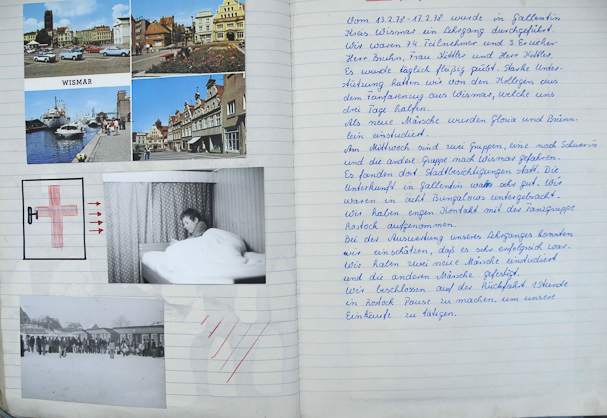 WISMAR
Vom 13.2.78-17.2.78 wurde in Gallentin
Kreis Wismar ein Lehrgang durchgeführt.
Wir waren 74 Teilnehmer und 3 Erzieher
Herr Bruhn, Frau Kittler und Herr Kittler.
Es wurde täglich fleißig geübt. Starke Unter-
stützung hatten wir von den Kollegen aus
dem Fanfarenzug aus Wismar, welche uns
drei Tage halfen.
Als neue Märsche wurden Gloria und Brünn-
lein einstudiert.
Am Mittwoch sind zwei Gruppen, eine nach Schwerin
und die andere Gruppe nach Wismar gefahren.
Es fanden dort Stadtbesichtigungen statt. Die
Unterkunft in Gallentin war sehr gut. Wir
waren in acht Bungalows untergebracht.
Wir haben engen Kontakt mit der Tanzgruppe
Rostock aufgenommen.
Bei der Auswertung unseres Lehrganges konnten
wir einschätzen, daß es sehr erfolgreich war.
Wir haben zwei neue Märsche einstudiert
und die anderen Märsche gefestigt.
Wir beschlossen auf der Rückfahrt 1 Stunde
in Rostock Pause zu machen um unsere
Einkäufe zu tätigen.